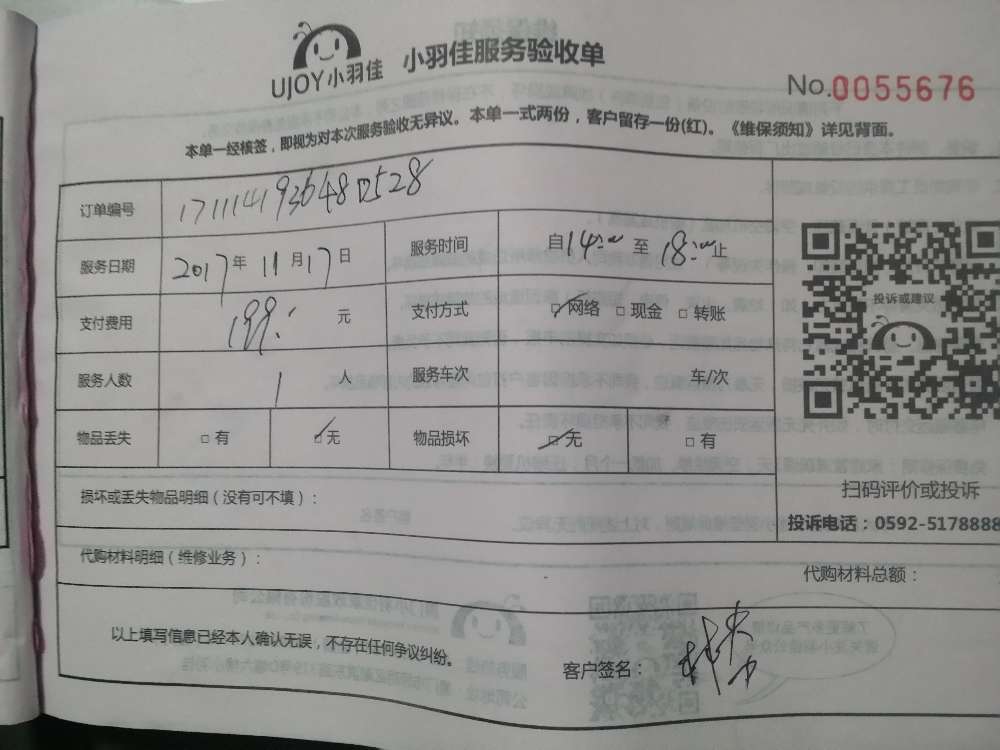 UJOY小羽佳 小羽佳服务验收单
No.0055676
本单一经核签，即视为对本次服务验收无异议。本单一式两份，客户留存一份(红)。《维保须知》详见背面。
订单编号
服务日期 2017年 11月17日 服务时间 自14:00 至 18:00止
支付费用 199. 元 支付方式 网络 □现金 □转账
服务人数 1 人 服务车次 车/次
物品丢失 □有 □无 物品损坏 □无 □有
投诉或建议
扫码评价或投诉
投诉电话：0592-5178888
损坏或丢失物品明细（没有可不填）：
代购材料明细（维修业务）：
代购材料总额：
以上填写信息已经本人确认无误，不存在任何争议纠纷。
客户签名：